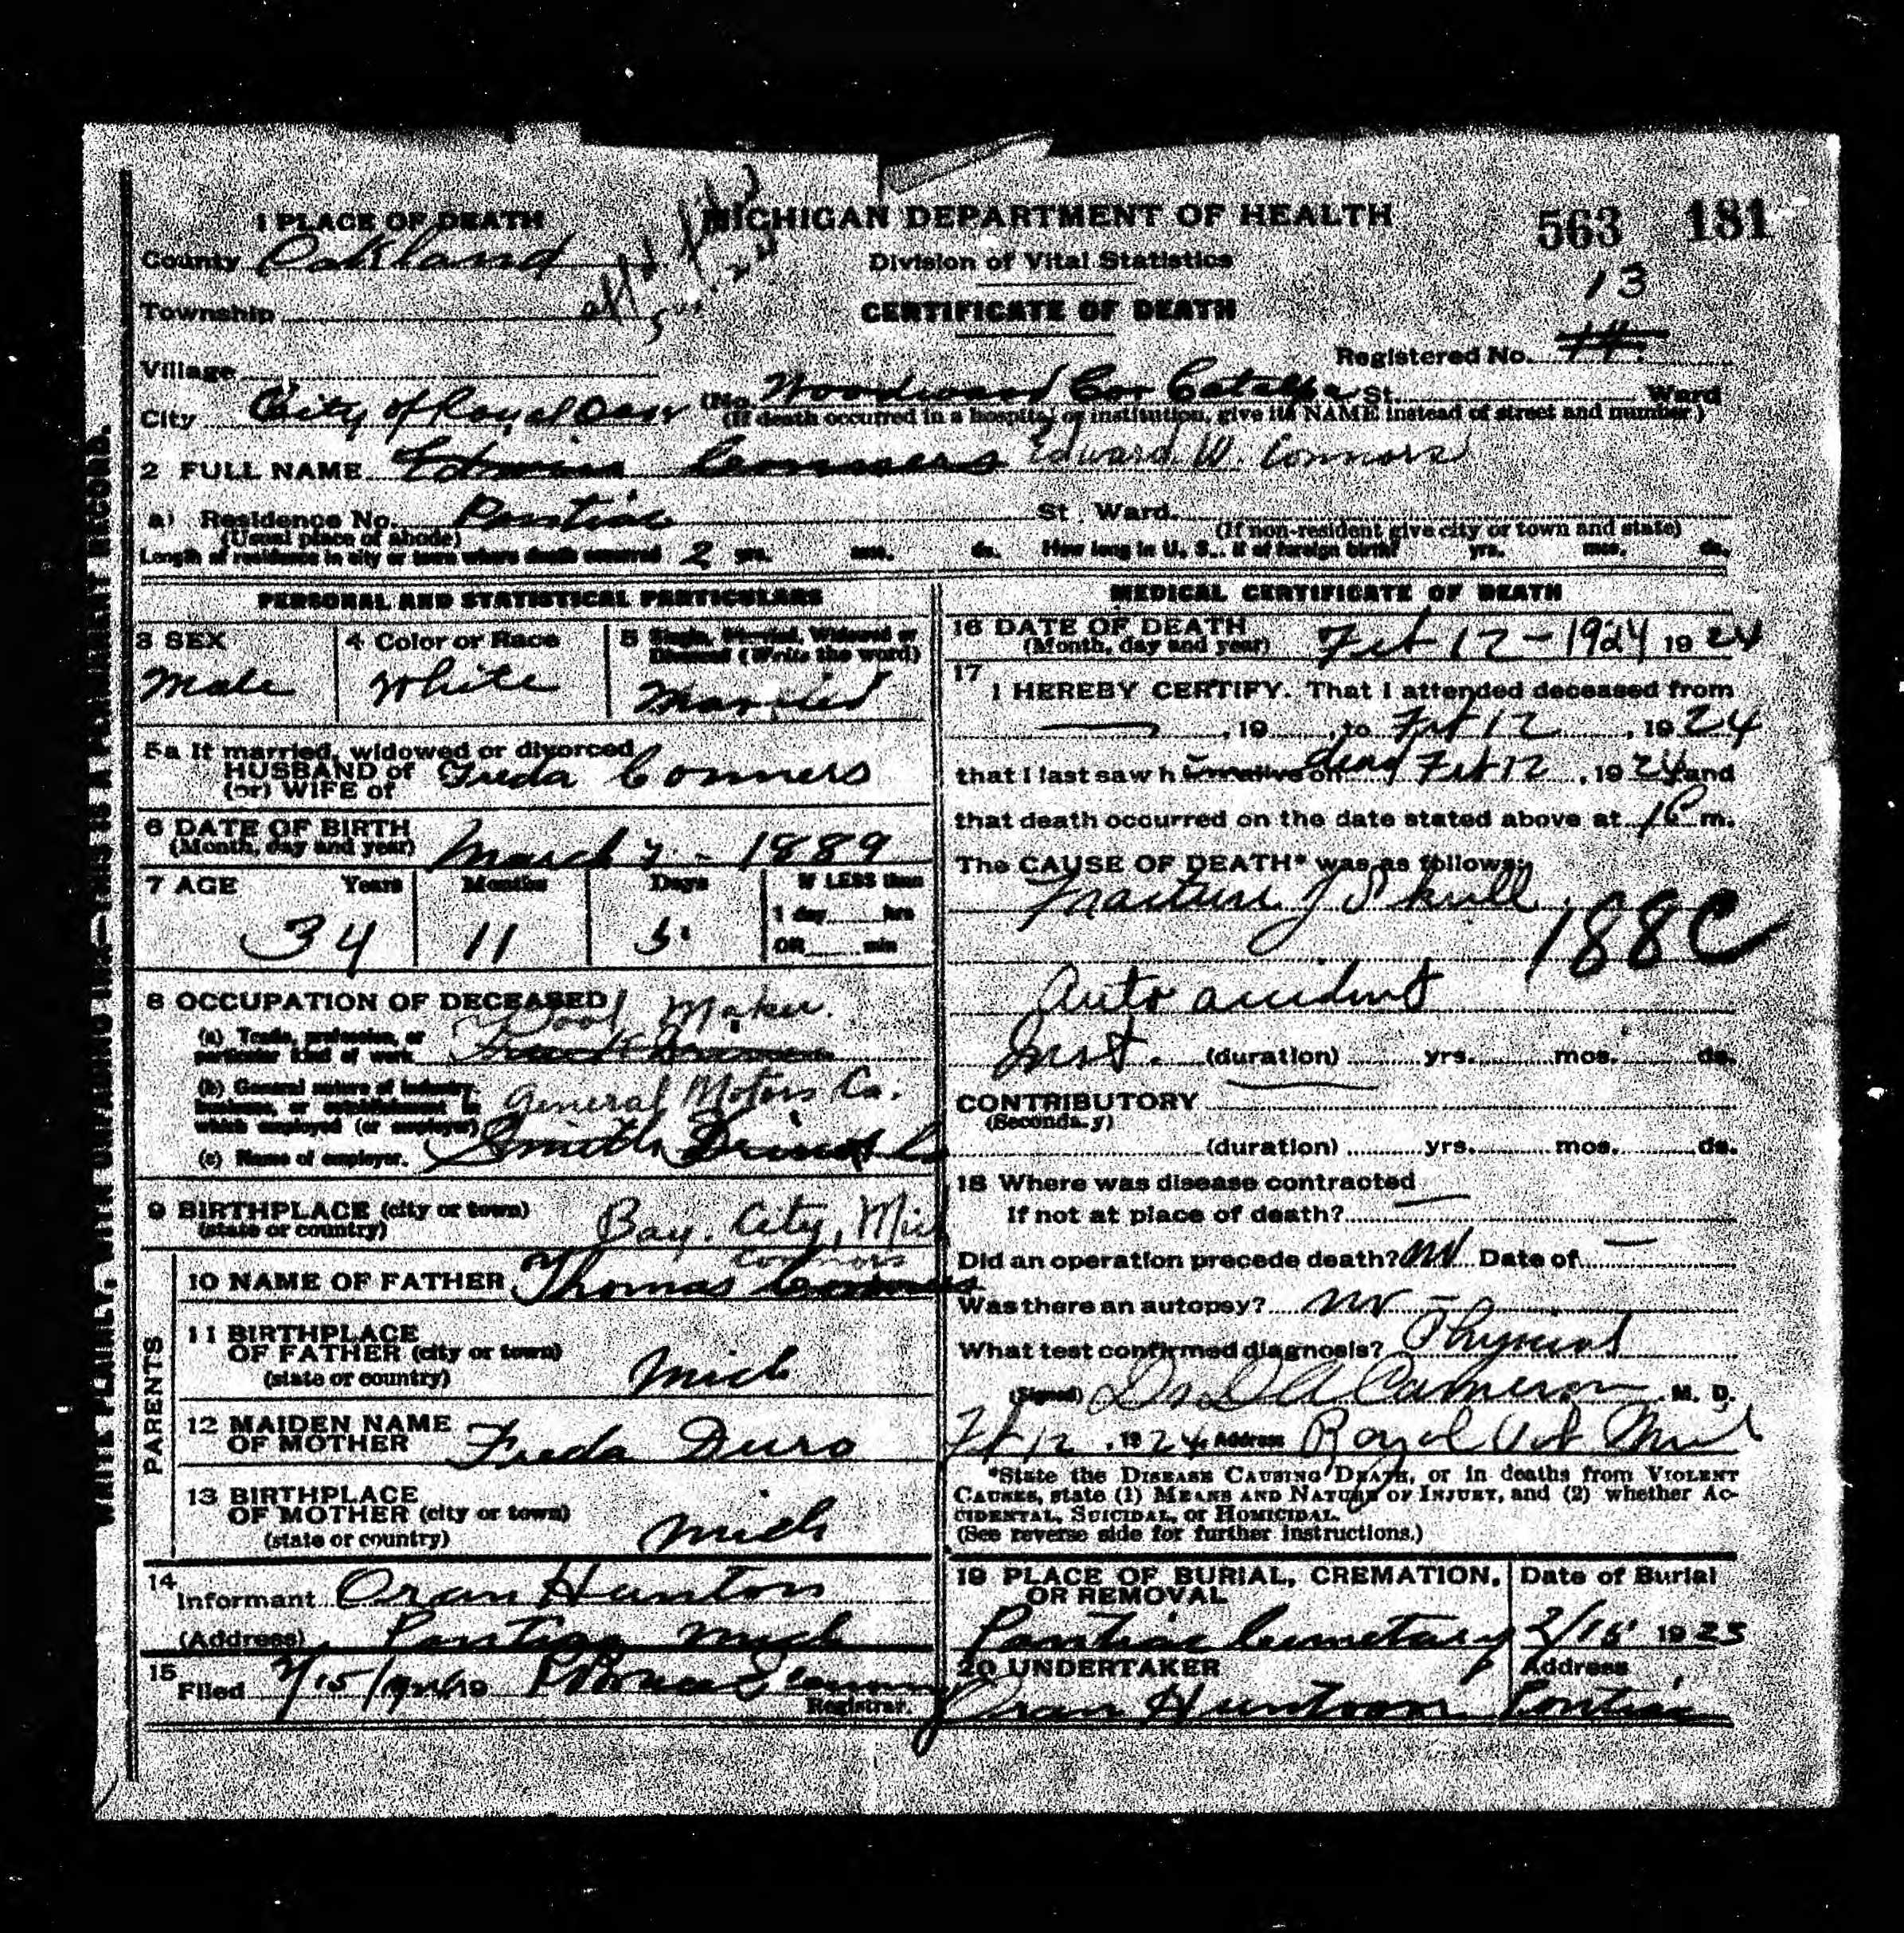 1 PLACE OF DEATH
MICHIGAN DEPARTMENT OF HEALTH
563 181
County Oakland
Division of Vital Statistics
13
Township
CERTIFICATE OF DEATH
Registered No.
Village
City City of Royal Oak (No. Woodward Cor Catalpa St. Ward
(If death occurred in a hospital or institution, give its NAME instead of street and number)
2 FULL NAME Edwin Conners Edward W. Connors
a) Residence No. Pontiac St. Ward.
(Usual place of abode) (If non-resident give city or town and state)
Length of residence in city or town where death occurred 2 yrs. mos. ds. How long in U. S., if of foreign birth? yrs. mos. ds.
WRITE PLAINLY, WITH UNFADING INK—THIS IS A PERMANENT RECORD.
PERSONAL AND STATISTICAL PARTICULARS
3 SEX 4 Color or Race 5 Single, Married, Widowed or
Divorced (Write the word)
Male White Married
5a If married, widowed or divorced
HUSBAND of Freda Conners
(or) WIFE of
6 DATE OF BIRTH
(Month, day and year) March 7 - 1889
7 AGE Years Months Days If LESS than
1 day hrs
34 11 5 OR min
8 OCCUPATION OF DECEASED
(a) Trade, profession, or Tool Maker.
particular kind of work
(b) General nature of industry,
business, or establishment in General Motors Co.
which employed (or employer)
(c) Name of employer. Smith
9 BIRTHPLACE (city or town)
(state or country) Bay City, Mich
Connors
10 NAME OF FATHER Thomas Conners
PARENTS
11 BIRTHPLACE
OF FATHER (city or town)
(state or country) Mich
12 MAIDEN NAME
OF MOTHER Freda Duro
13 BIRTHPLACE
OF MOTHER (city or town)
(state or country) Mich
14
Informant Oran Hunton
(Address) Pontiac Mich
15
Filed 2/15/1924 19
Registrar.
MEDICAL CERTIFICATE OF DEATH
16 DATE OF DEATH
(Month, day and year) Feb 12 - 1924 19 24
17
I HEREBY CERTIFY. That I attended deceased from
, 19 , to Feb 12 , 19 24
that I last saw h im alive on dead Feb 12 , 19 24 and
that death occurred on the date stated above at 1 P m.
The CAUSE OF DEATH* was as follows:
Fracture of Skull
188C
Auto accident
Inst. (duration) yrs. mos. ds.
CONTRIBUTORY
(Secondary)
(duration) yrs. mos. ds.
18 Where was disease contracted
If not at place of death?
Did an operation precede death? no Date of
Was there an autopsy? no
What test confirmed diagnosis? Physical
(Signed) Dr D A Cameron M. D.
Feb 12 , 19 24 Address Royal Oak Mich
*State the DISEASE CAUSING DEATH, or in deaths from VIOLENT
CAUSES, state (1) MEANS AND NATURE OF INJURY, and (2) whether AC-
CIDENTAL, SUICIDAL, or HOMICIDAL.
(See reverse side for further instructions.)
19 PLACE OF BURIAL, CREMATION, Date of Burial
OR REMOVAL
Pontiac Cemetary 2/15 1925
20 UNDERTAKER Address
Oran Huntoon Pontiac